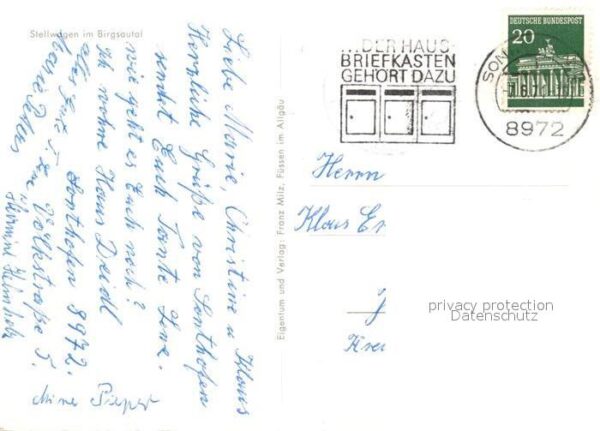 Stellwagen im Birgsautal
Liebe Marie, Christine u Klaus
Herzliche Grüße von Sonthofen
sendet Euch Tante Lene.
wie geht es Euch noch?
Ich wohne Haus Deidl
Sonthofen 8972.
Völkstraße 5.
Eigentum und Verlag: Franz Milz, Füssen im Allgäu
...DER HAUS-
BRIEFKASTEN
GEHÖRT DAZU
DEUTSCHE BUNDESPOST
20
SON
8972
Herrn
Klaus Er
privacy protection
Datenschutz